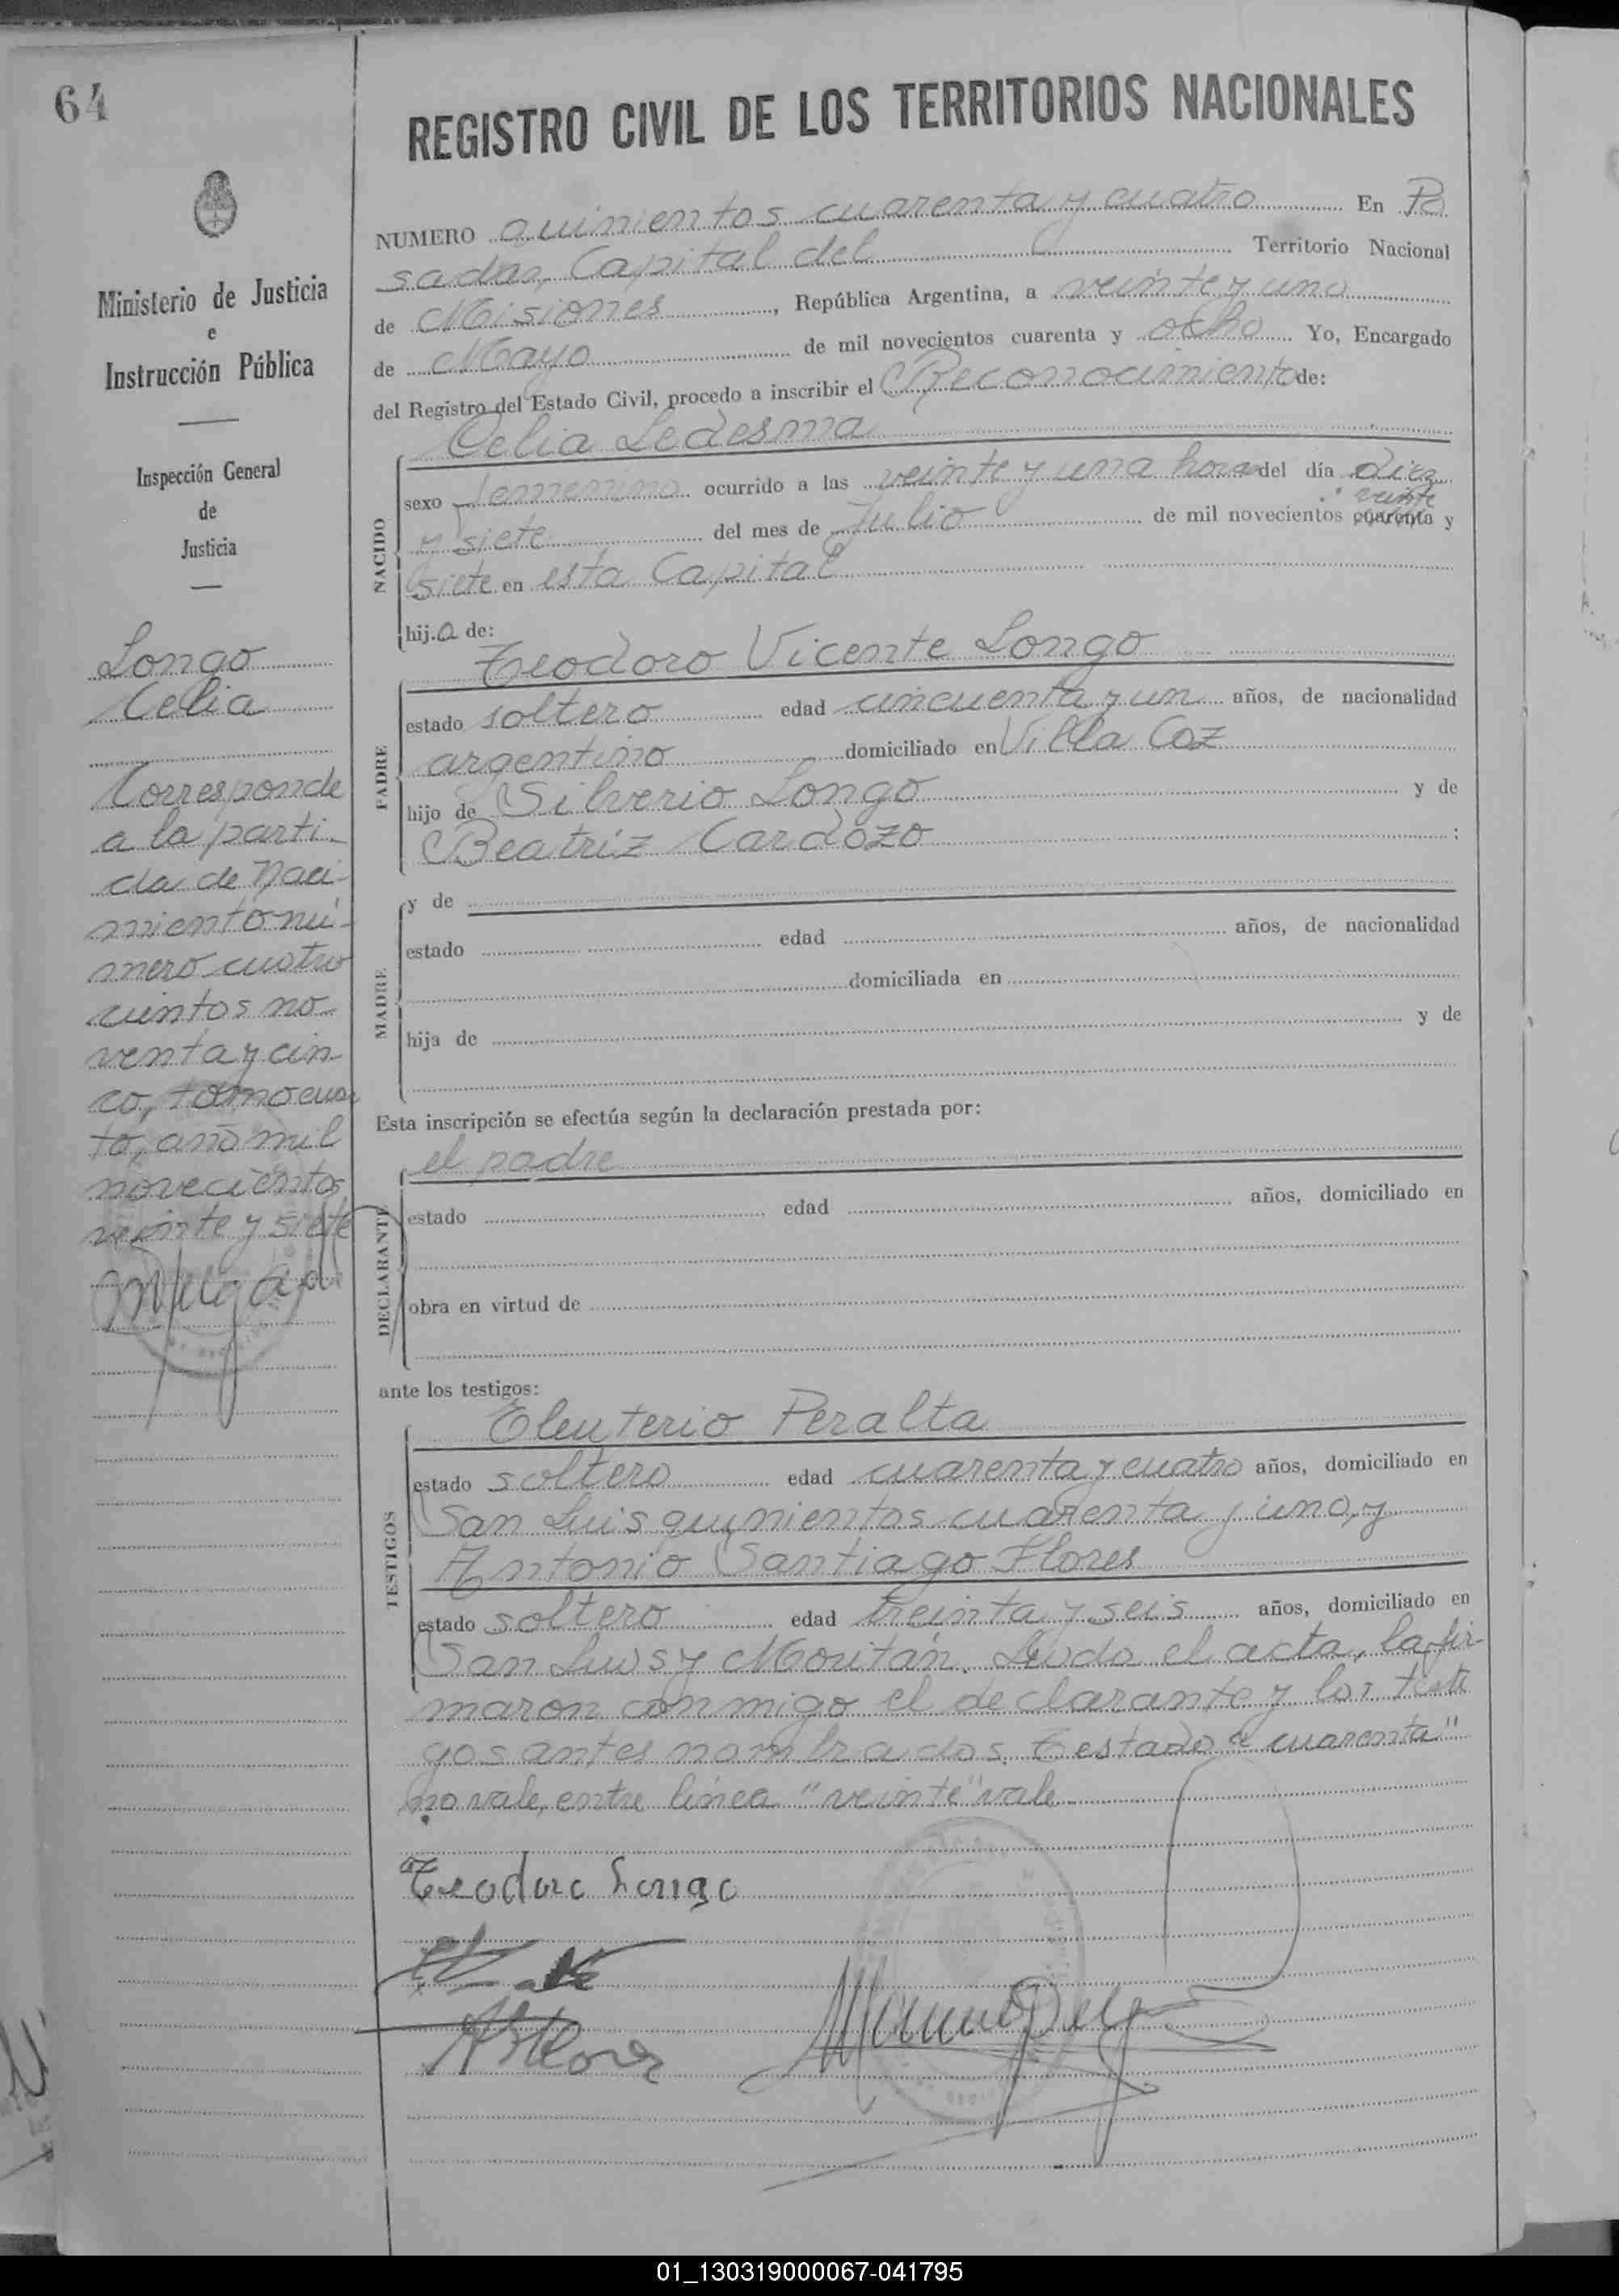 64
REGISTRO CIVIL DE LOS TERRITORIOS NACIONALES
Ministerio de Justicia
e
Instrucción Pública
Inspección General
de
Justicia
Longo
Celia
Corresponde
a la parti-
da de Naci-
miento nú-
mero cuatro
cientos no-
venta y cin-
co, tomo cuar
to, año mil
novecientos
veinte y siete
NUMERO quinientos cuarenta y cuatro En Po
sadas, Capital del Territorio Nacional
de Misiones, República Argentina, a veinte y uno
de Mayo de mil novecientos cuarenta y ocho Yo, Encargado
del Registro del Estado Civil, procedo a inscribir el Reconocimiento de:
Celia Ledesma
NACIDO
sexo femenino ocurrido a las veinte y una horas del día diez
veinte
y siete del mes de Julio de mil novecientos cuarenta y
siete en esta Capital
hija de:
Teodoro Vicente Longo
PADRE
estado soltero edad cincuenta y un años, de nacionalidad
argentino domiciliado en Villa Coz
hijo de Silverio Longo y de
Beatriz Cardozo ;
MADRE
y de
estado edad años, de nacionalidad
domiciliada en
hija de y de
Esta inscripción se efectúa según la declaración prestada por:
el padre
DECLARANTE
estado edad años, domiciliado en
obra en virtud de
ante los testigos:
Eleuterio Peralta
TESTIGOS
estado soltero edad cuarenta y cuatro años, domiciliado en
San Luis quinientos cuarenta y uno, y
Antonio Santiago Flores
estado soltero edad treinta y seis años, domiciliado en
San Luis y Moritán. Leída el acta, la fir-
maron conmigo el declarante y los testi
gos antes nombrados. Testado "cuarenta"
no vale, entre línea "veinte" vale
Teodoro Longo
01_130319000067-041795